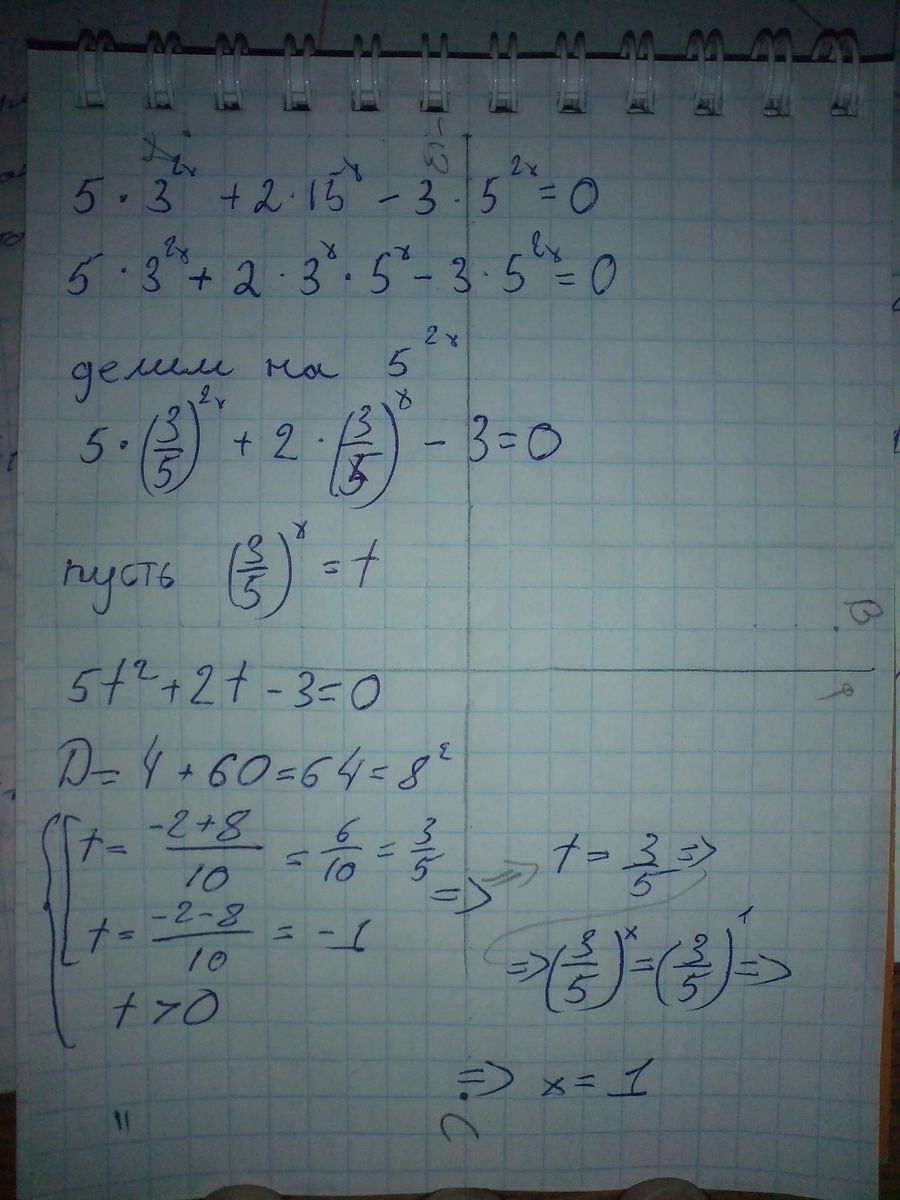 5 · 3^{2x} + 2 · 15^x - 3 · 5^{2x} = 0
5 · 3^{2x} + 2 · 3^x · 5^x - 3 · 5^{2x} = 0
делим на 5^{2x}
5 · (3/5)^{2x} + 2 · (3/5)^x - 3 = 0
пусть (3/5)^x = t
5t² + 2t - 3 = 0
D = 4 + 60 = 64 = 8²
t = (-2+8)/10 = 6/10 = 3/5
t = (-2-8)/10 = -1
t > 0
=> t = 3/5 =>
=> (3/5)^x = (3/5)^1 =>
=> x = 1
B
C